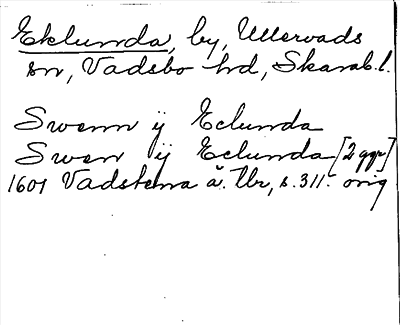 Eklunda, by, Ullervads
sn, Vadsbo hd, Skarab.l.
Swenn ÿ Eclunda
Swen ÿ Eclunda [2 ggr]
1601 Vadstena ä. Tbr, s. 311. orig